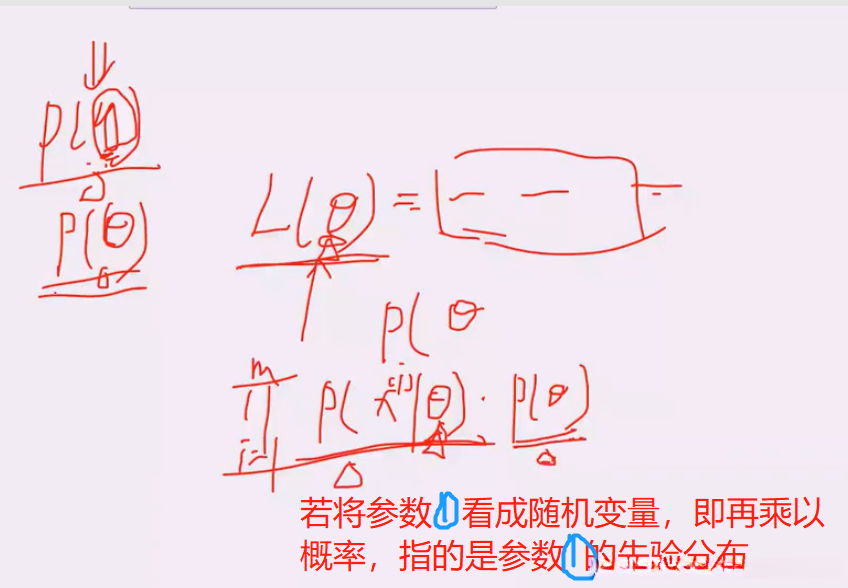 p(θ)
p(θ)
L(θ) =
p( θ
m
∏ p(x⁽ⁱ⁾|θ) · p(θ)
i=1
若将参数 看成随机变量,即再乘以
概率,指的是参数 的先验分布